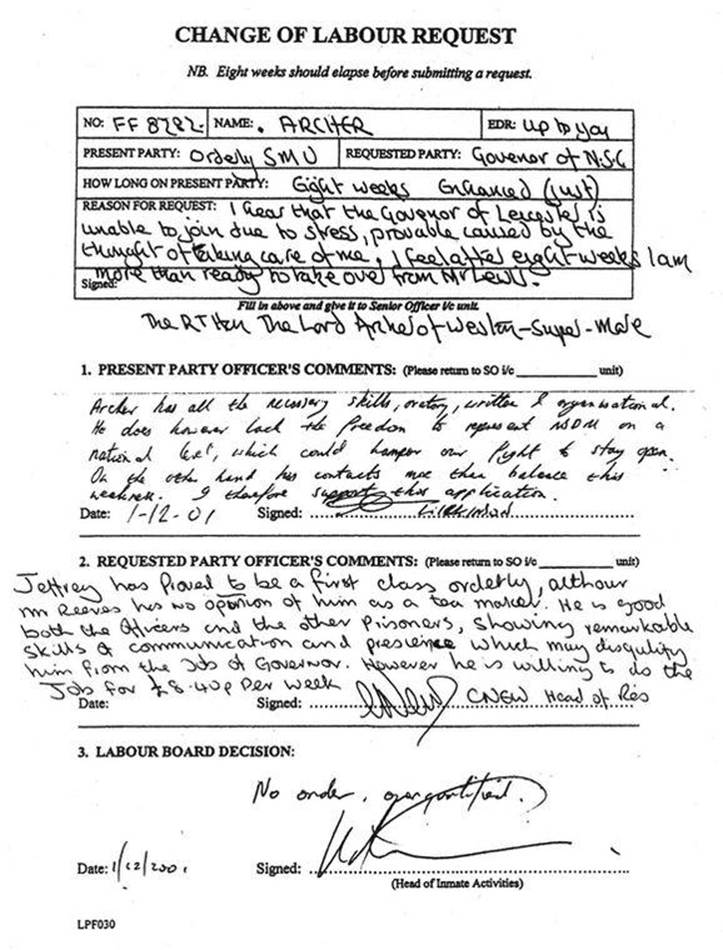 CHANGE OF LABOUR REQUEST
NB. Eight weeks should elapse before submitting a request.
NO: FF 8282 NAME: . ARCHER EDR: Up to you
PRESENT PARTY: Orderly SMU REQUESTED PARTY: Govenor of N.S.C
HOW LONG ON PRESENT PARTY: Eight weeks Enhanced (just)
REASON FOR REQUEST: I hear that the Governor of Leicester is
unable to join due to stress, provable caused by the
thought of taking care of me, I feel after eight weeks I am
more than ready to take over from Mr Lewis.
Signed:
Fill in above and give it to Senior Officer i/c unit.
The RT Hon The Lord Archer of Weston-Super-Mare
1. PRESENT PARTY OFFICER'S COMMENTS: (Please return to SO i/c ____________ unit)
Archer has all the necessary skills, oratory, written & organisational.
He does however lack the freedom to represent on a
national level, which could hamper our fight to stay open.
On the other hand his contacts more than balance this
weakness. I therefore support this application.
Date: 1-12-01 Signed:
2. REQUESTED PARTY OFFICER'S COMMENTS: (Please return to SO i/c ____________ unit)
Jeffrey has Proved to be a first class orderly, althour
Mr Reeves has no opinion of him as a tea maker. He is good
both the Officers and the other prisoners, showing remarkable
skills of communication and presience which may disqulify
him from the Job of Governor. However he is willing to do the
Job for £8.40p Per week
Date: Signed: CNEW Head of Res
3. LABOUR BOARD DECISION:
No order, overqualified.
Date: 1/12/2001 Signed:
(Head of Inmate Activities)
LPF030